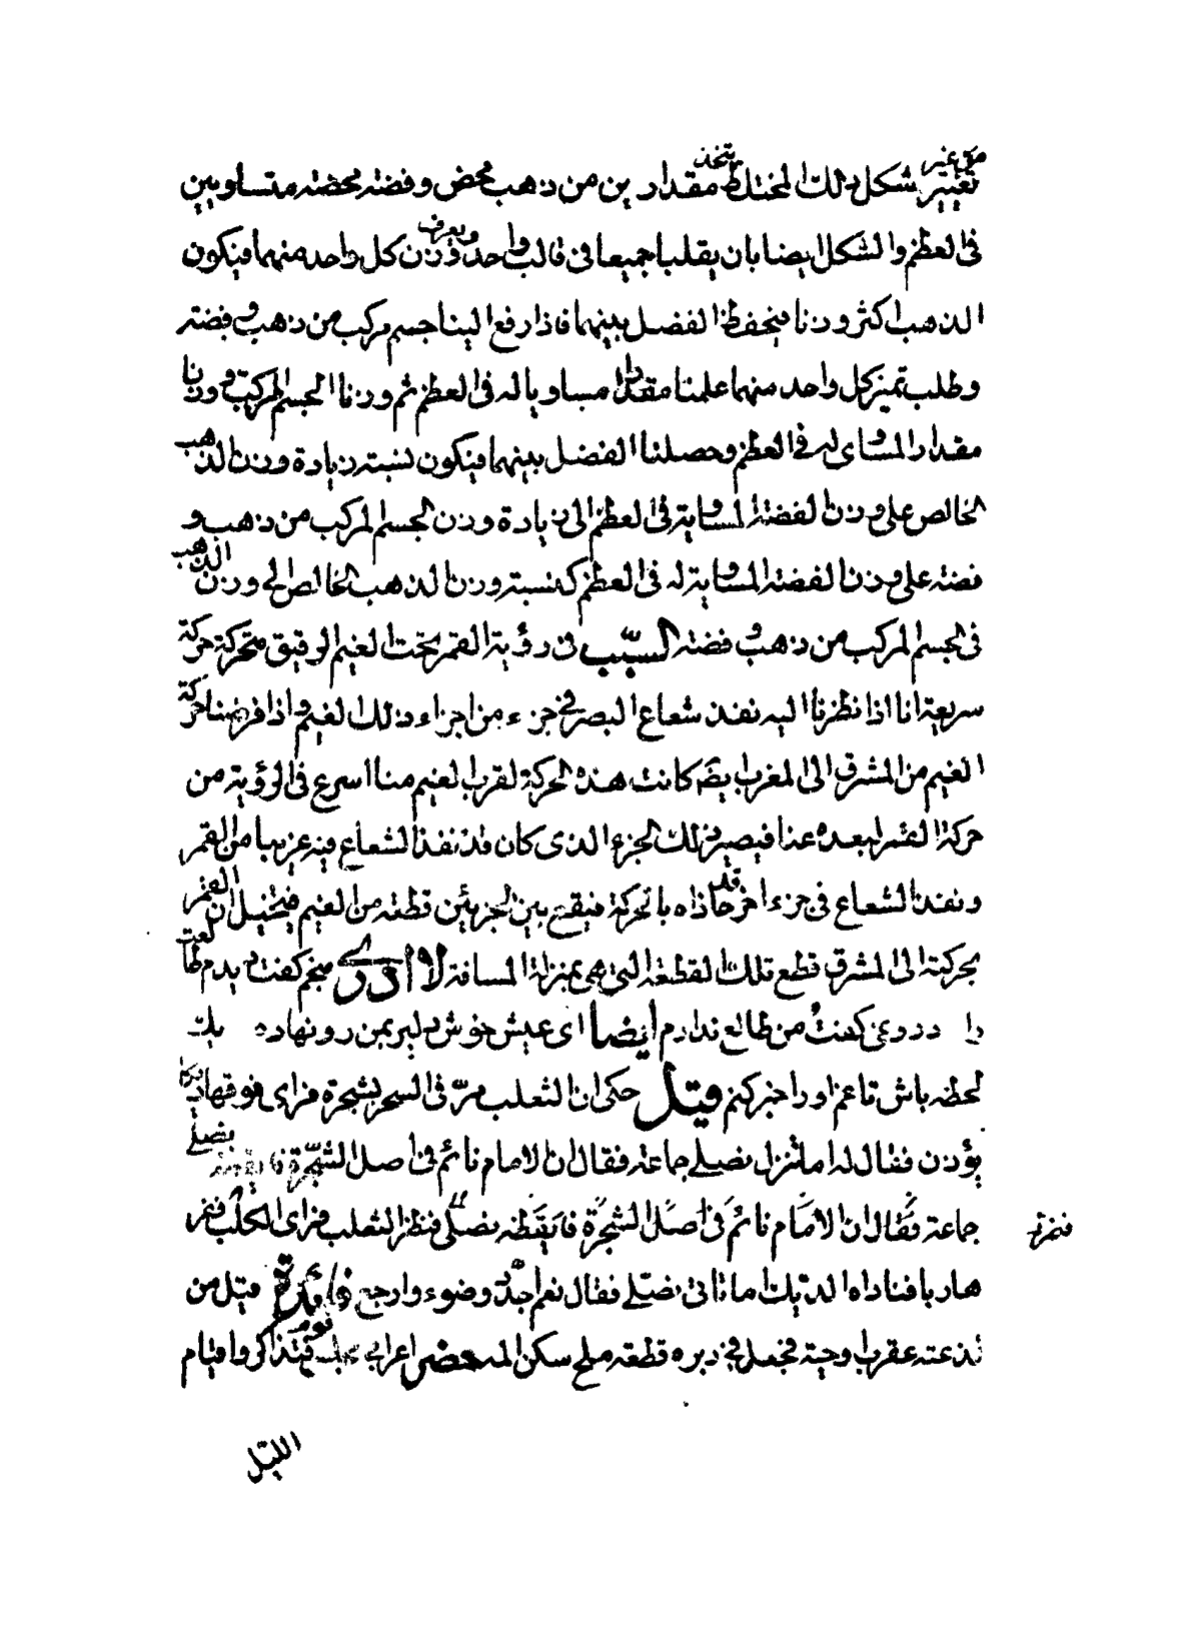 من غير
تغيير شكل ذلك المختلط يتخذ مقدارين من ذهب محض وفضة محضة متساويين
فى العظم والشكل ايضا بان يقلبا جميعا فى قالب واحد ويعرف وزن كل واحد منهما فيكون
الذهب اكثر وزنا فيحفظ الفضل بينهما فاذا رفع الينا جسم مركب من ذهب و فضة
وطلب تميز كل واحد منهما علمنا مقدارا مساويا له فى العظم ثم وزنا الجسم المركب و وزن
مقدار المساوى له فى العظم وحصلنا الفضل بينهما فيكون نسبة زيادة وزن الذهب
الخالص على وزن الفضة المساوية فى العظم الى زيادة وزن الجسم المركب من ذهب و
فضة على وزن الفضة المساوية له فى العظم كنسبة وزن الذهب الخالص الى وزن الذهب
فى الجسم المركب من ذهب و فضة السبب فى رؤية القمر تحت الغيم الرقيق متحركة حركة
سريعة انا اذا نظرنا اليه نفذ شعاع البصر فى جزء من اجزاء ذلك الغيم و اذا فرضنا حركة
الغيم من المشرق الى المغرب كانت هذه الحركة لقرب الغيم منا اسرع فى الرؤية من
حركة القمر لبعده عنا فيصير ذلك الجزء الذى كان قد نفذ الشعاع فيه غربيا من القمر
ونفذ الشعاع فى جزء اخر قد حاذاه بالحركة فيقع بين الجزئين قطعة من الغيم فيتخيل ان القمر
بحركته الى المشرق قطع تلك القطعة التى هى بمنزلة المسافة لا ادرى منجم كفت ديدم طالعت
را دروغى كفت من طالع ندارم ايضا اى عيش خوش دلبر بمن رو نهاده يك
لحظه باش تا غم او را خبر كنم قيل حكى ان الثعلب مرّ فى السحر بشجرة فراى فوقها ديكا
يؤذن فقال له اما تنزل نصلى جماعة فقال ان الامام نائم فى اصل الشجرة فايقظه نصلى
جماعة فقال ان الامام نائم فى اصل الشجرة فايقظه نصلى فنظر الثعلب فراى الكلب فمر
هاربا فناداه الديك اما تاتى نصلى فقال نعم اجدد وضوء وارجع فائدة قيل من
لدغته عقرب او حية فجعل فى دبره قطعة ملح سكن الم حضر اعرابى مجلس قوم فتذاكروا قيام
الليل